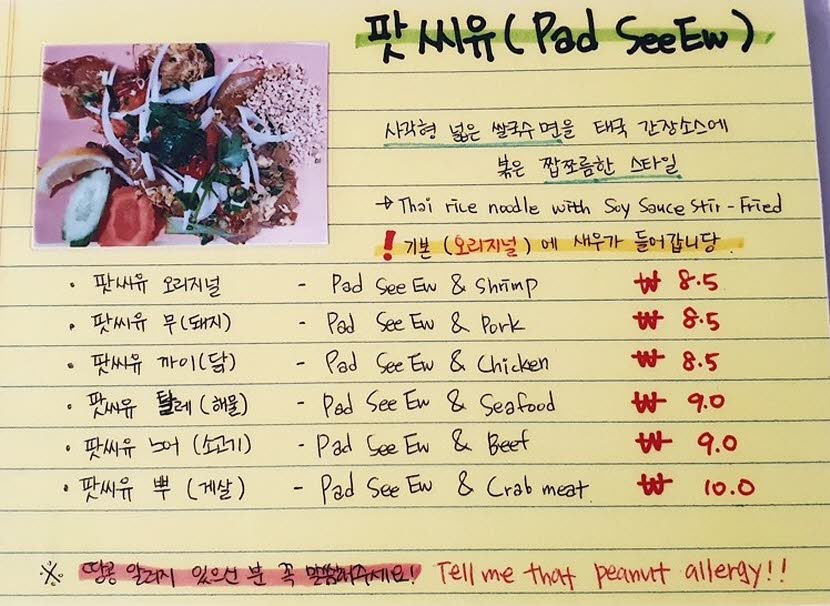 팟씨유(Pad SeeEw)
사각형 넓은 쌀국수면을 태국 간장소스에
볶은 짭쪼름한 스타일
→ Thai rice noodle with Soy Sauce Stir-Fried
! 기본 (오리지널)에 새우가 들어갑니당
· 팟씨유 오리지널 - Pad See Ew & Shrimp ₩ 8.5
· 팟씨유 무(돼지) - Pad See Ew & Pork ₩ 8.5
· 팟씨유 까이(닭) - Pad See Ew & Chicken ₩ 8.5
· 팟씨유 탈레(해물) - Pad See Ew & Seafood ₩ 9.0
· 팟씨유 느어(소고기) - Pad See Ew & Beef ₩ 9.0
· 팟씨유 뿌(게살) - Pad See Ew & Crab meat ₩ 10.0
※ 땅콩 알러지 있으신 분 꼭 말씀해주세요! Tell me that peanut allergy!!